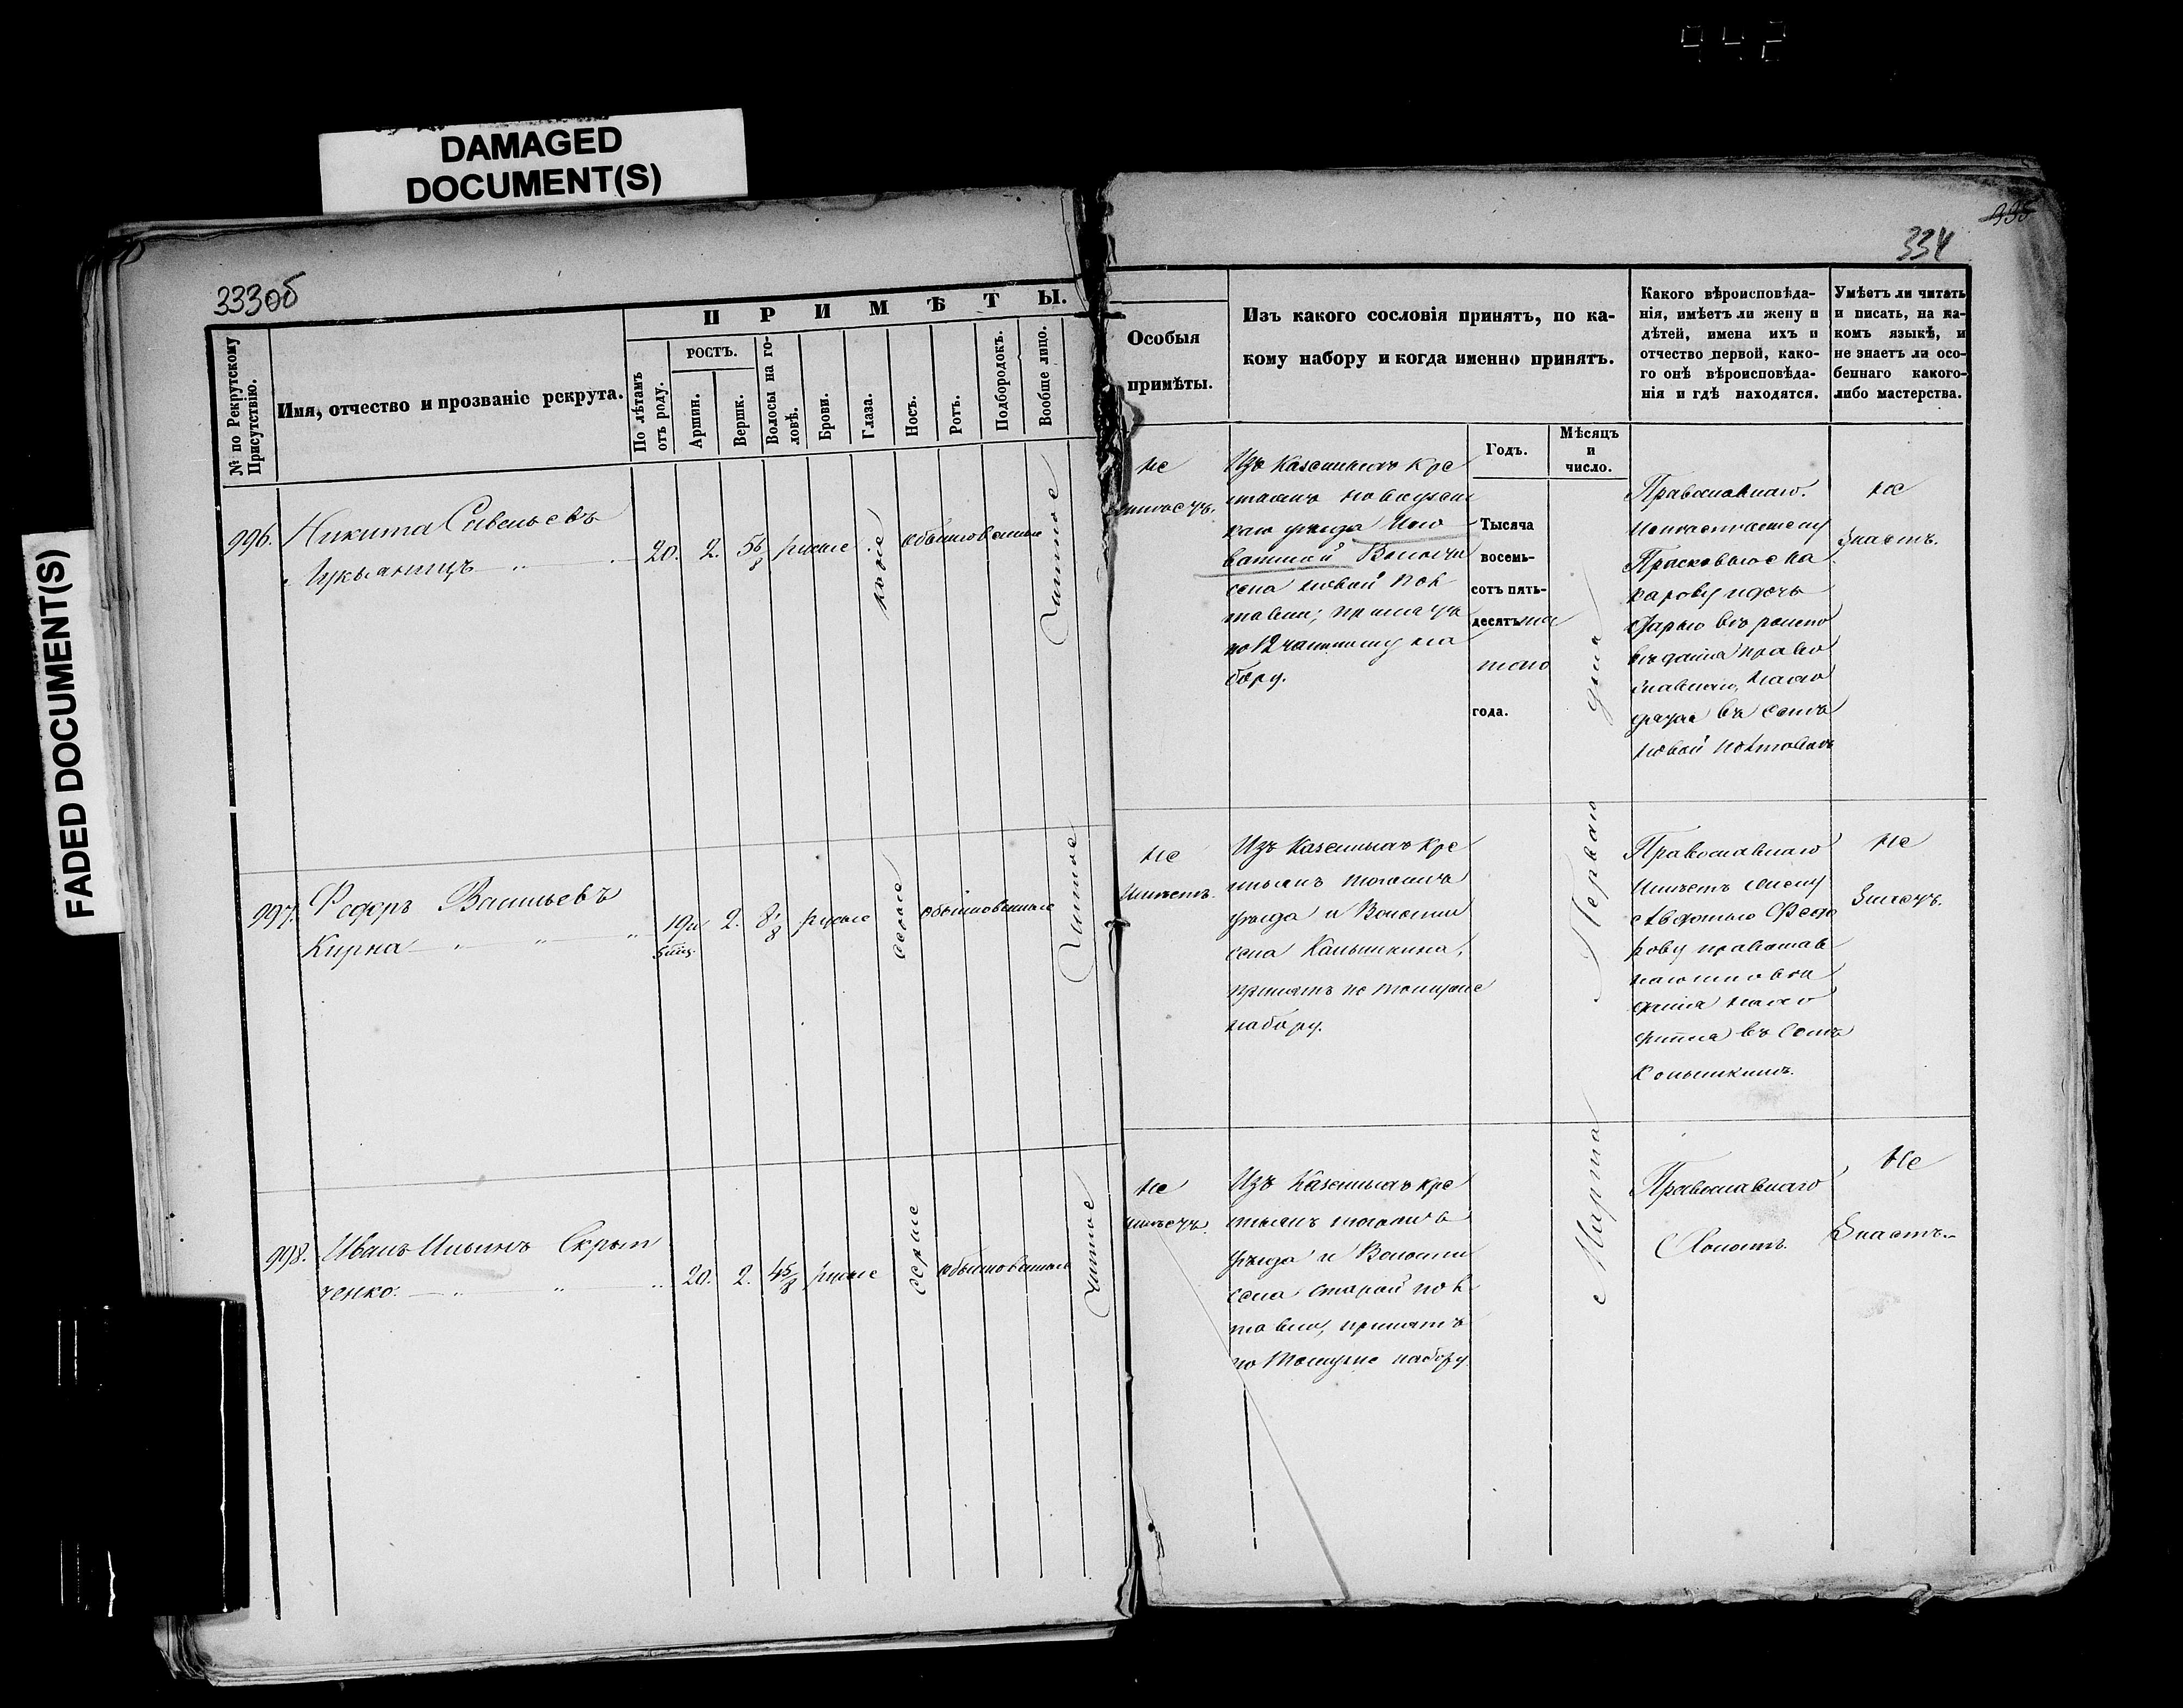 DAMAGED
DOCUMENT(S)
FADED DOCUMENT(S)
333об
334
335
№ по Рекрутскому
Присутствію.
Имя, отчество и прозваніе рекрута.
ПРИМѢТЫ.
По лѣтамъ
отъ роду.
РОСТЪ.
Аршин.
Вершк.
Волосы на го-
ловѣ.
Брови.
Глаза.
Носъ.
Ротъ.
Подбородокъ.
Вообще лицо.
Особыя
примѣты.
Изъ какого сословія принятъ, по ка-
кому набору и когда именно принятъ.
Годъ.
Мѣсяцъ
и
число.
Какого вѣроисповѣда-
нія, имѣетъ ли жену и
дѣтей, имена ихъ и
отчество первой, како-
го онѣ вѣроисповѣда-
нія и гдѣ находятся.
Умѣетъ ли читать
и писать, на ка-
комъ языкѣ, и
не знаетъ ли осо-
беннаго какого-
либо мастерства.
996.
Никита Савельевъ
Лукьяницъ
20. 2. 5 6/8 русые
каріе
обыкновенные
Чистое
не
имѣетъ.
Изъ Казенныхъ кре
стьянъ
уѣзда
Волости
села Новой
принятъ
по 12 частному на
бору.
Тысяча
восемь-
сотъ пять-
десятъ
года.
Православнаго.
дочь
Дарью вѣроиспо
вѣданія право
славнаго, нахо
дятся въ селѣ
Новой
не
знаетъ.
997.
Федоръ Васильевъ
Кирна
19 2. 8 1/8 русые
обыкновенные
Чистое
Не
имѣетъ.
Изъ Казенныхъ кре
стьянъ тогожъ
уѣзда и Волости
села
принятъ по томуже
набору.
Перваго
Православнаго
Имѣетъ жену
Федо
рову православ
наго
нахо
въ селѣ
Не
знаетъ.
998.
Иванъ Ильинъ Скрып
ченко.
20. 2. 4 5/8 русые
сѣрые
обыкновенные
чистое
Не
имѣетъ.
Изъ Казенныхъ кре
стьянъ тогожъ
уѣзда и Волости
села Старой
принятъ
по томуже набору
Марта
дня
Православнаго
Холостъ.
Не
Знаетъ.